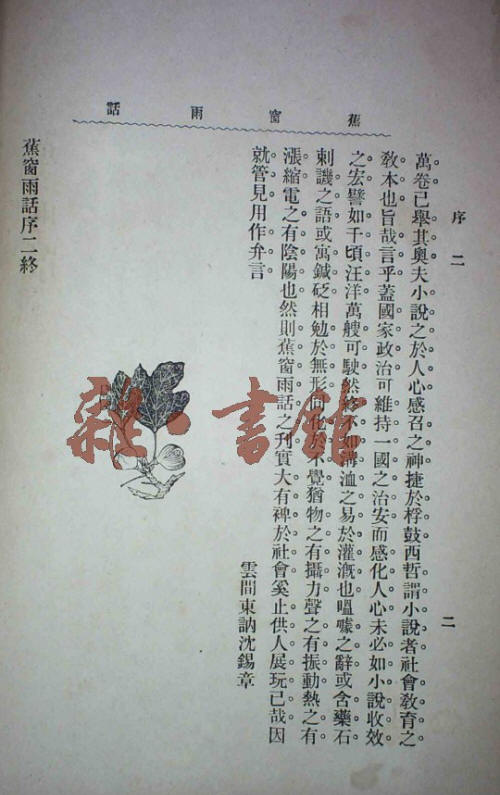 蕉窗雨話
序二
二
萬卷已舉其奧夫小說之於人心感召之神捷於桴鼓西哲謂小說者社會敎育之
敎本也旨哉言乎蓋國家政治可維持一國之治安而感化人心未必如小說收效
之宏譬如千頃汪洋萬艘可駛然終不如溝洫之易於灌漑也嗢噱之辭或含藥石
刺譏之語或寓鍼砭相勉於無形同化於不覺猶物之有攝力聲之有振動熱之有
漲縮電之有陰陽也然則蕉窗雨話之刊實大有裨於社會奚止供人展玩已哉因
就管見用作弁言
雲間東訥沈錫章
蕉窗雨話序二終
雜·書館